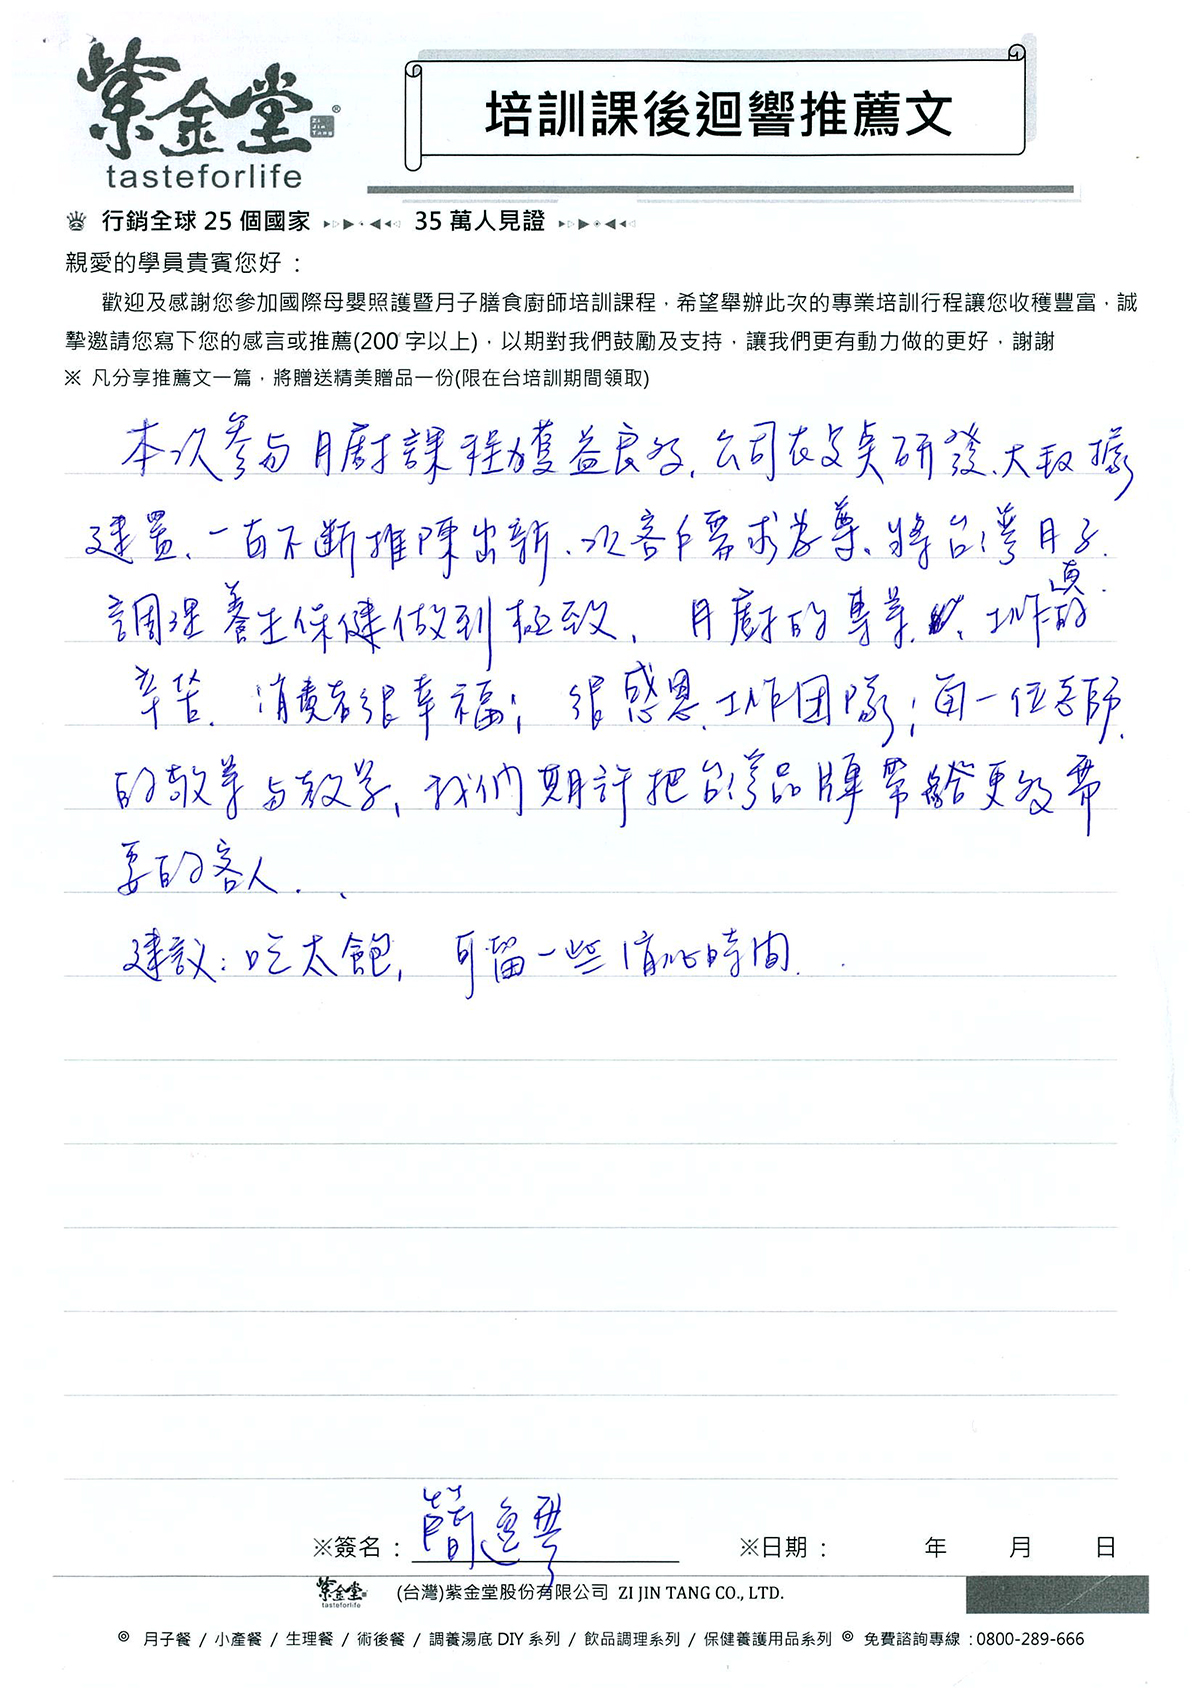 紫金堂®
Zi Jin Tang
tasteforlife
培訓課後迴響推薦文
行銷全球 25 個國家 35 萬人見證
親愛的學員貴賓您好：
歡迎及感謝您參加國際母嬰照護暨月子膳食廚師培訓課程，希望舉辦此次的專業培訓行程讓您收穫豐富，誠
摯邀請您寫下您的感言或推薦(200 字以上)，以期對我們鼓勵及支持，讓我們更有動力做的更好，謝謝
※ 凡分享推薦文一篇，將贈送精美贈品一份(限在台培訓期間領取)
本次參与月廚課程獲益良多，公司在研發、大數據
建置、一直不斷推陳出新、以客戶需求為尊、將台灣月子
調理養生保健做到極致，月廚的專業、工作真的
辛苦、消費者很幸福；很感恩工作团隊；每一位老師
的敬業与教學，我們期許把台灣品牌帶給更多需
要的客人．．
建議：吃太飽，可留一些消化時間．．
※簽名：簡
※日期： 年 月 日
紫金堂 tasteforlife (台灣)紫金堂股份有限公司 ZI JIN TANG CO., LTD.
◎ 月子餐 / 小產餐 / 生理餐 / 術後餐 / 調養湯底 DIY 系列 / 飲品調理系列 / 保健養護用品系列 ◎ 免費諮詢專線：0800-289-666